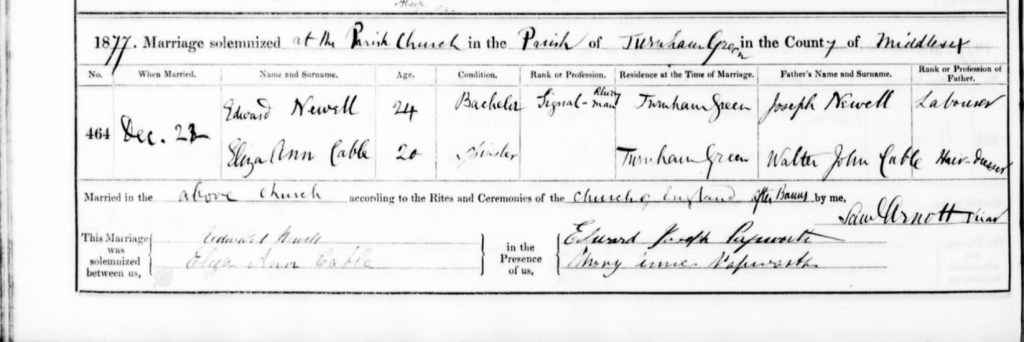 1877. Marriage solemnized at the Parish Church in the Parish of Turnham Green in the County of Middlesex
No. When Married. Name and Surname. Age. Condition. Rank or Profession. Residence at the Time of Marriage. Father's Name and Surname. Rank or Profession of Father.
464 Dec. Edward Newell 24 Bachelor Signal-man Rlway Turnham Green Joseph Newell Labourer
Eliza Ann Cable 20 Spinster Turnham Green Walter John Cable Hair-dresser
Married in the above Church according to the Rites and Ceremonies of the Church of England after Banns by me,
Saml Arnott Vicar
This Marriage was solemnized between us, Edward Newell Eliza Ann Cable in the Presence of us, Edward Joseph Papworth Mary Papworth